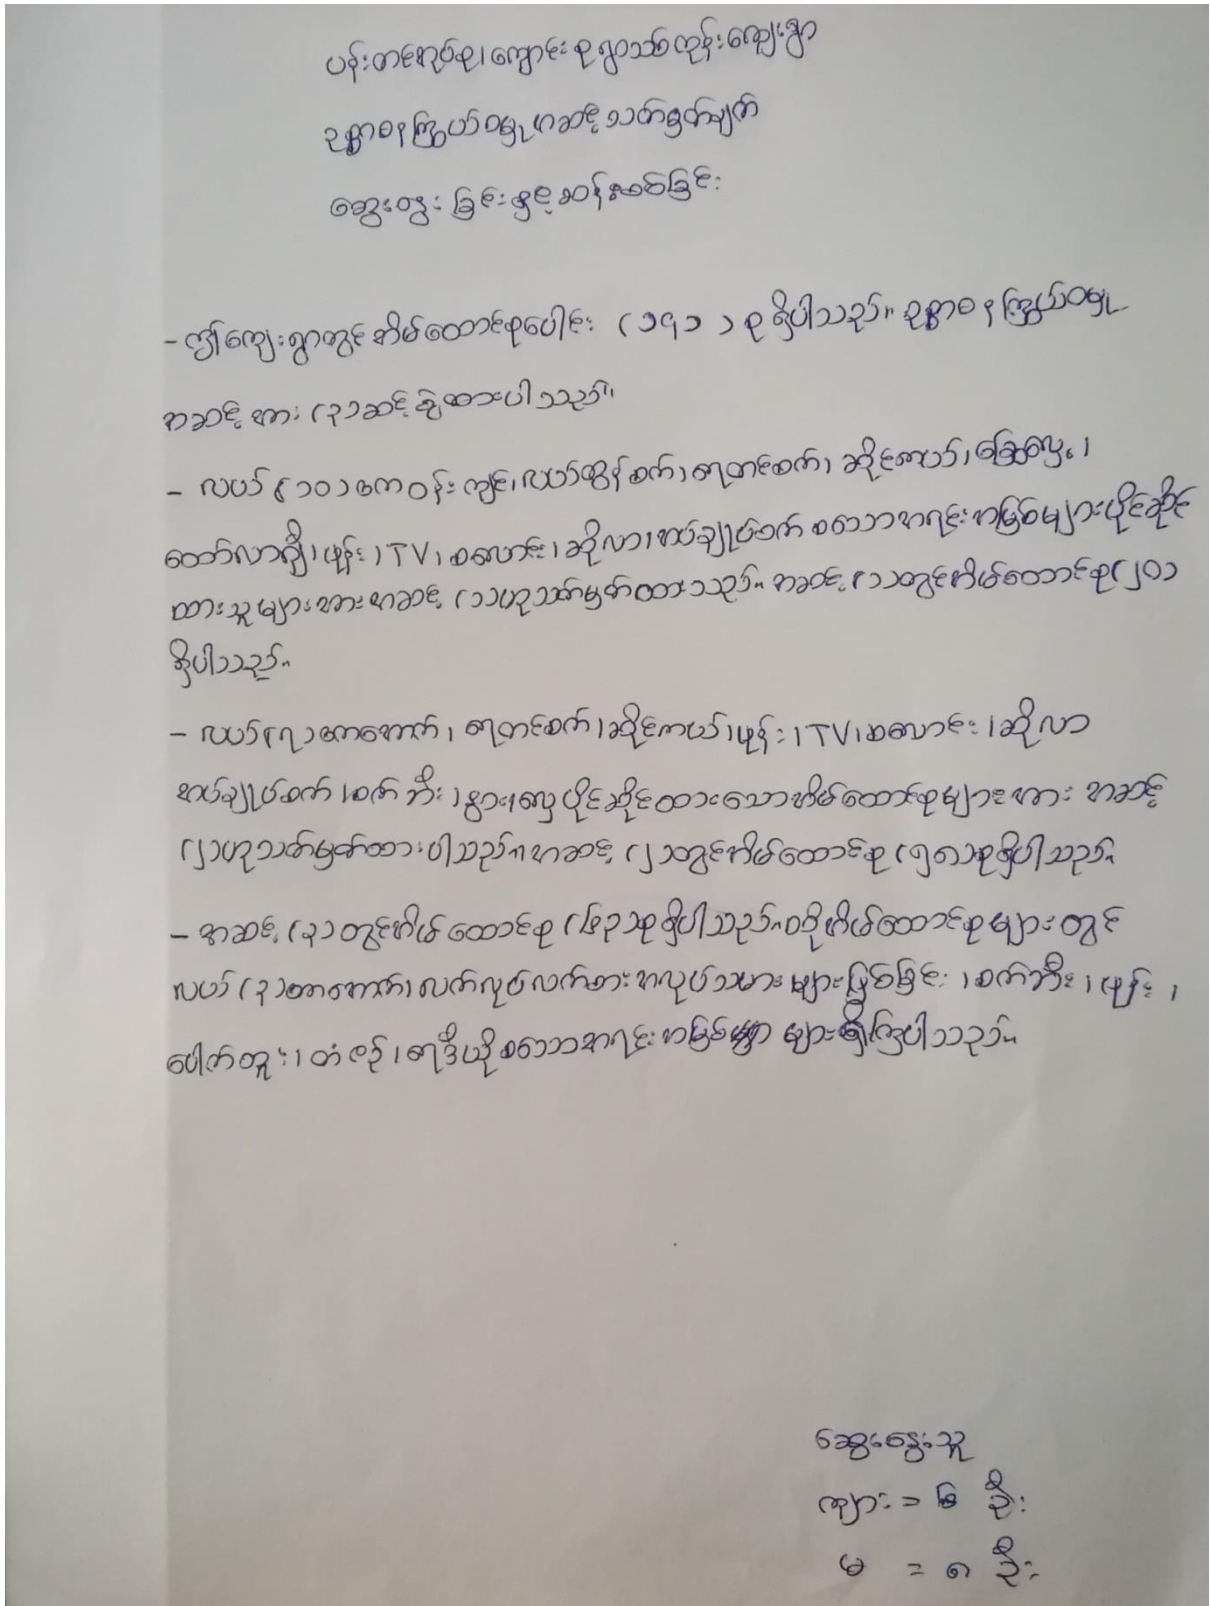 ပန်းတင်အုပ်စု၊ ကျောင်းစုရွာသစ်ကုန်းကျေးရွာ
ဥစ္စာဓနကြွယ်ဝမှုအဆင့်သတ်မှတ်ချက်
ဆွေးနွေးခြင်းနှင့်ဆန်းစစ်ခြင်း
- ဤကျေးရွာတွင်အိမ်ထောင်စုပေါင်း (၁၄၁) စုရှိပါသည်။ ဥစ္စာဓနကြွယ်ဝမှု
အဆင့်အား (၃)ဆင့်ခွဲထားပါသည်။
- လယ် (၁၀)ဧကဝန်းကျင်၊ လယ်ထွန်စက်၊ ရေတင်စက်၊ ဆိုင်ကယ်၊ ခြွေလှေ့၊
ထော်လာဂျီ၊ ဖုန်း၊ TV၊ စလောင်း၊ ဆိုလာ၊ အပ်ချုပ်စက် စသောအရင်းအမြစ်များပိုင်ဆိုင်
ထားသူများအားအဆင့် (၁)ဟုသတ်မှတ်ထားသည်။ အဆင့် (၁)တွင်အိမ်ထောင်စု(၂၀)
ရှိပါသည်။
- လယ်(၇)ဧကအောက်၊ ရေတင်စက်၊ ဆိုင်ကယ်၊ ဖုန်း၊ TV၊ စလောင်း၊ ဆိုလာ
အပ်ချုပ်စက်၊ စက်ဘီး၊ နွား၊ လှေပိုင်ဆိုင်ထားသောအိမ်ထောင်စုများအား အဆင့်
(၂)ဟုသတ်မှတ်ထားပါသည်။ အဆင့် (၂)တွင်အိမ်ထောင်စု (၅၈)စုရှိပါသည်။
- အဆင့် (၃)တွင်အိမ်ထောင်စု (၆၃)စုရှိပါသည်။ ၎င်းအိမ်ထောင်စုများတွင်
လယ် (၃)ဧကအောက်၊ လက်လုပ်လက်စားအလုပ်သမားများဖြစ်ခြင်း၊ စက်ဘီး၊ ဖုန်း၊
ပေါက်တူး၊ တံစဉ်၊ ရေဒီယိုစသောအရင်းအမြစ်များရှိကြပါသည်။
ဆွေးနွေးသူ
ကျား = ၆ ဦး
မ = ၈ ဦး